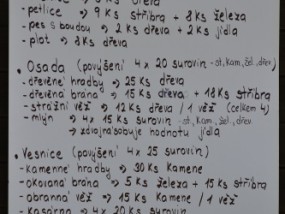 - petlice → 9 Ks stříbra + 8 Ks železa
- pes s boudou → 2 Ks dřeva + 2 Ks jídla
- plot → 8 Ks dřeva
• Osada (povýšení 4 x 20 surovin - st, kam, žel, dřev)
- dřevěné hradby → 25 Ks dřeva
- dřevěná brána → 15 Ks dřeva + 18 Ks stříbra
- strážní věž → 12 Ks dřeva / 1 věž (celkem 4)
- mlýn → 4 x 15 Ks surovin - st, kam, žel, dřev
→ zdvojnásobuje hodnotu jídla
• Vesnice (povýšení 4 x 25 surovin)
- kamenné hradby → 30 Ks kamene
- okovaná brána → 5 Ks železa + 15 Ks stříbra
- obranná věž → 15 Ks kamene / 1 věž
- kasárna → 4 x 20 Ks surovin